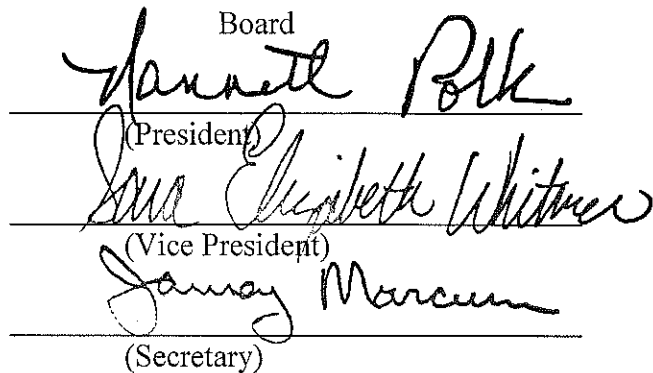 Board
Nannett Polk
(President)
Sara Elizabeth Whitmer
(Vice President)
Marcum
(Secretary)